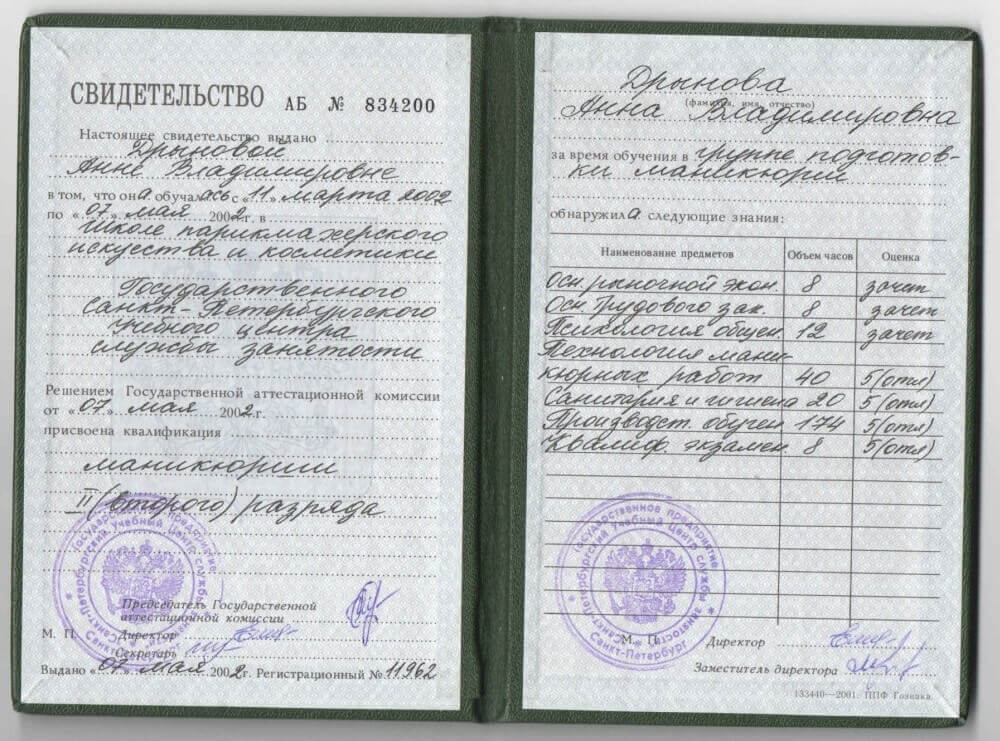 СВИДЕТЕЛЬСТВО АБ № 834200
Настоящее свидетельство выдано
Дрыновой
Анне Владимировне
в том, что она обучалась с «11» марта 2002
по «07» мая 2002г. в
Школе парикмахерского
искуства и косметики
Государственного
Санкт-Петербургского
учебного центра
службы занятости
Решением Государственной аттестационной комиссии
от «07» мая 2002г.
присвоена квалификация
маникюрши
II (второго) разряда
Председатель Государственной
аттестационной комиссии
М. П. Директор
Секретарь
Выдано «07» мая 2002г. Регистрационный № 11962
Дрынова
(фамилия, имя, отчество)
Анна Владимировна
за время обучения в группе подготов-
ки маникюрш
обнаружила следующие знания:
Наименование предметов Объем часов Оценка
Осн. рыночной экон. 8 зачет
Осн. Трудового зак. 8 зачет
Психология общен. 12 зачет
Технология мани-
кюрных работ 40 5(отл)
Санитария и гигиена 20 5(отл)
Производст. обучен. 174 5(отл)
Квалиф. экзамен. 8 5(отл)
Государственное предприятие
Санкт-Петербургский Учебный Центр службы занятости
М. П. Директор
Заместитель директора
133440—2001. ППФ Гознака.